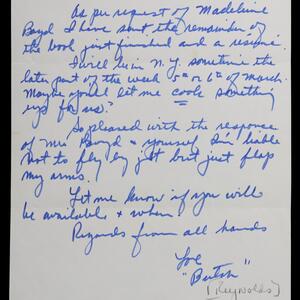 As per request of Madeleine
Boyd I have sent the remainder of
the book just finished and a resume.
I will be in N.Y. sometime the
later part of the week 5th or 6th of March.
Maybe you'll let me cook something
up for us?
So pleased with the response
of Mrs Boyd & yourself I'm liable
not to fly by jet but just flap
my arms.
Let me know if you will
be available & when
Regards from all hands
Joe
"Butch"
[Reynolds]